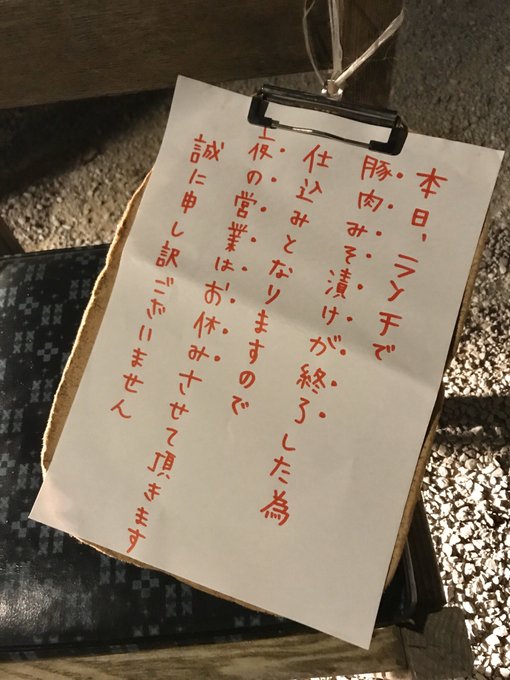 本日、ランチで
豚肉みそ漬けが終了した為
仕込みとなりますので
夜の営業はお休みさせて頂きます
誠に申し訳ございません